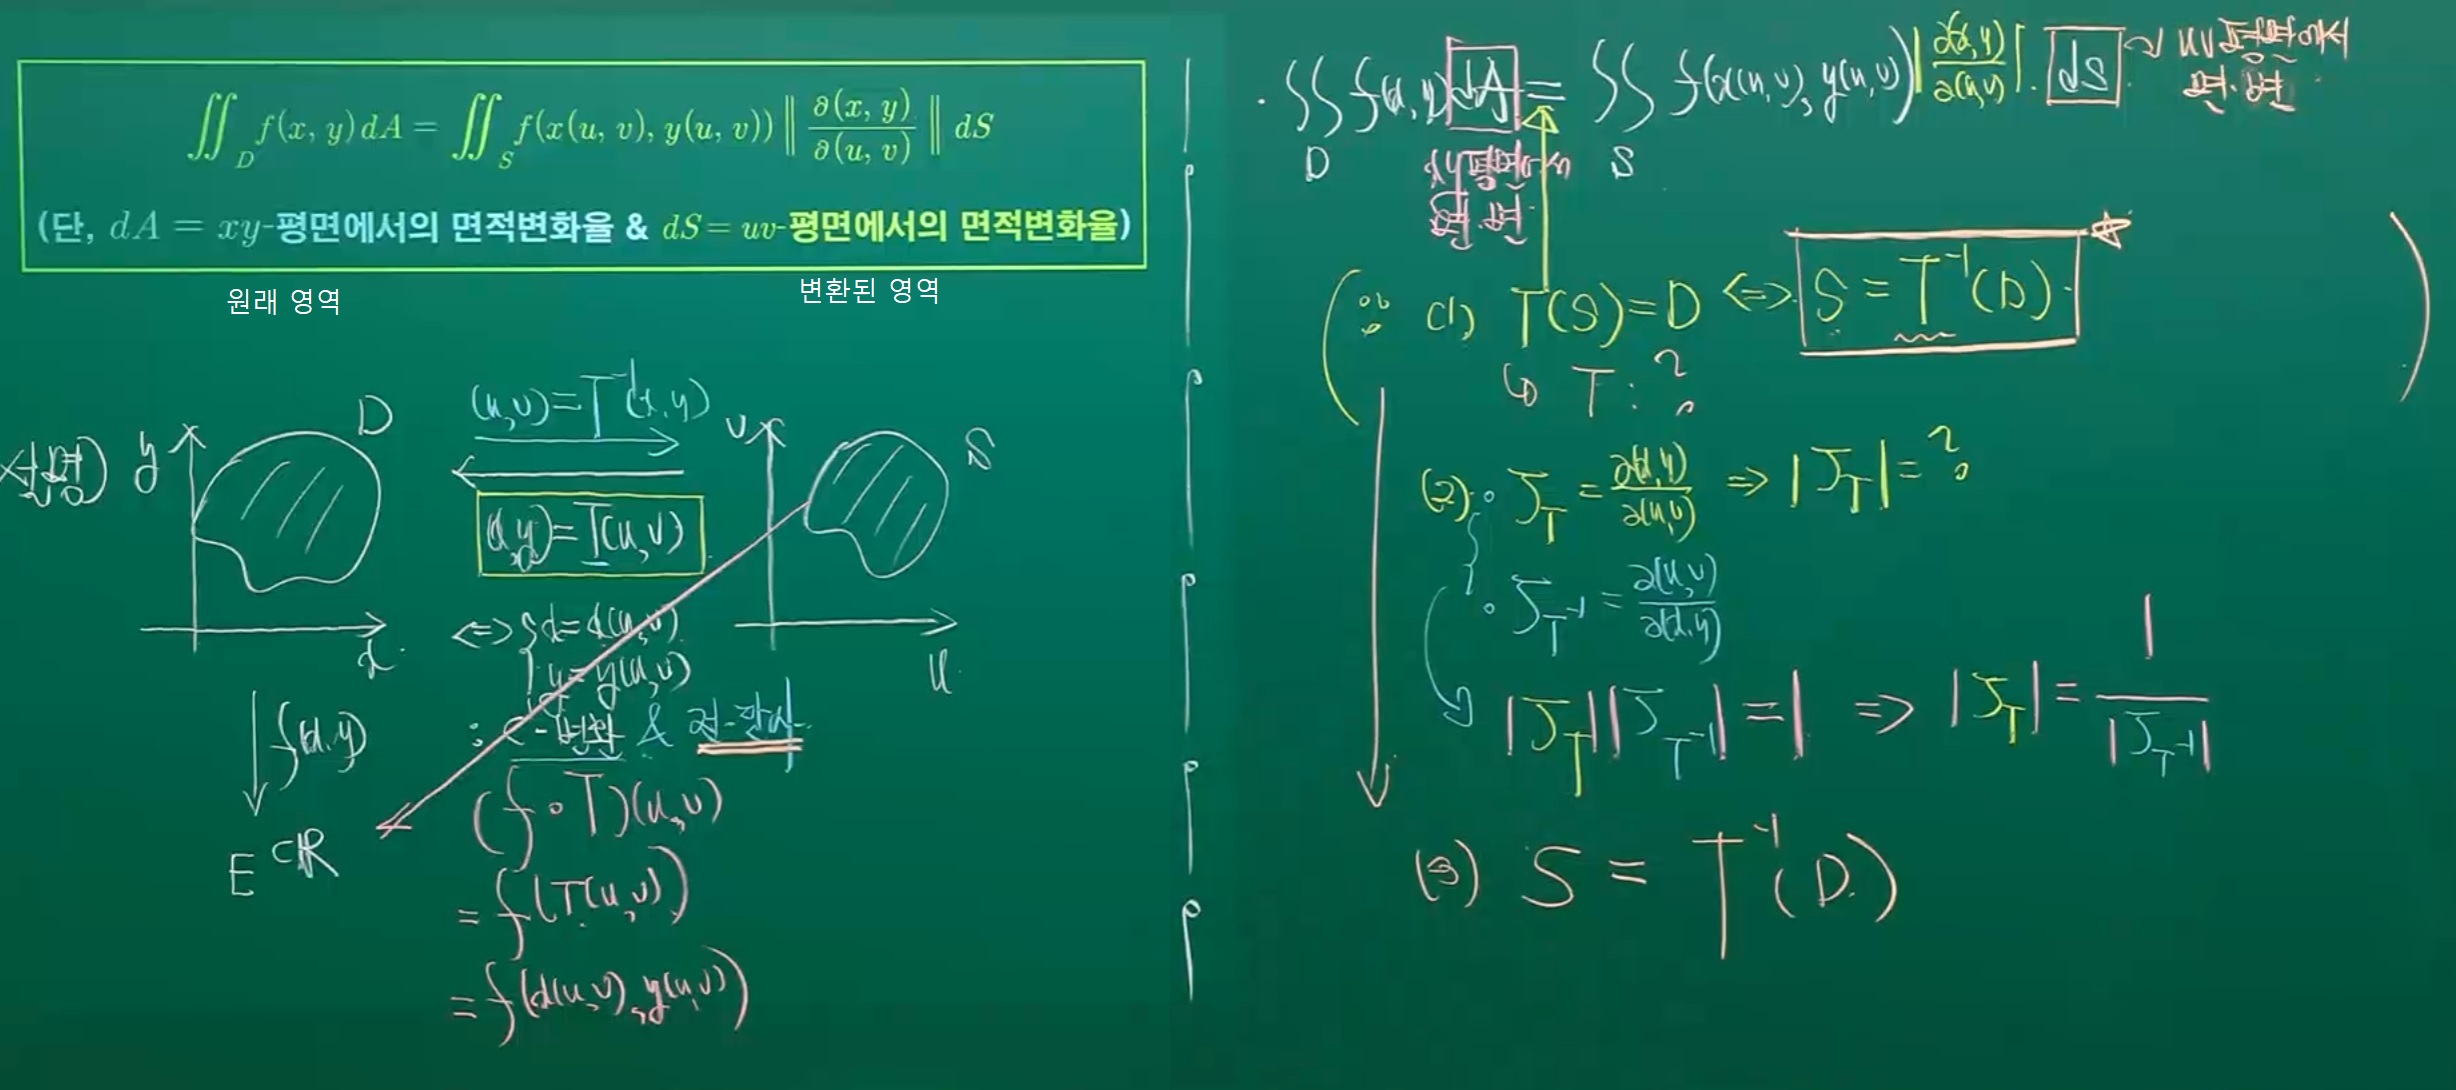 ∬_D f(x, y) dA = ∬_S f(x(u, v), y(u, v)) ‖ ∂(x, y) / ∂(u, v) ‖ dS
(단, dA = xy-평면에서의 면적변화율 & dS = uv-평면에서의 면적변화율)
원래 영역
변환된 영역
D
(u,v)=T⁻¹(x,y)
y
v
S
(x,y)=T(u,v)
x
u
⇔ { x=x(u,v)
y=y(u,v)
f(x,y)
: C¹-변환 & 전단사
E⊂ℝ
(f∘T)(u,v)
= f(T(u,v))
= f(x(u,v), y(u,v))
∬_D f(x,y) dA = ∬_S f(x(u,v), y(u,v)) |∂(x,y)/∂(u,v)| · dS ~ uv평면에서
xy평면에서
∵ (1) T(S)=D ⇔ S = T⁻¹(D)
↳ T : ?
(2) ∘ J_T = ∂(x,y)/∂(u,v) ⇒ |J_T| = ?
∘ J_T⁻¹ = ∂(u,v)/∂(x,y)
|J_T| |J_T⁻¹| = 1 ⇒ |J_T| = 1/|J_T⁻¹|
(3) S = T⁻¹(D)